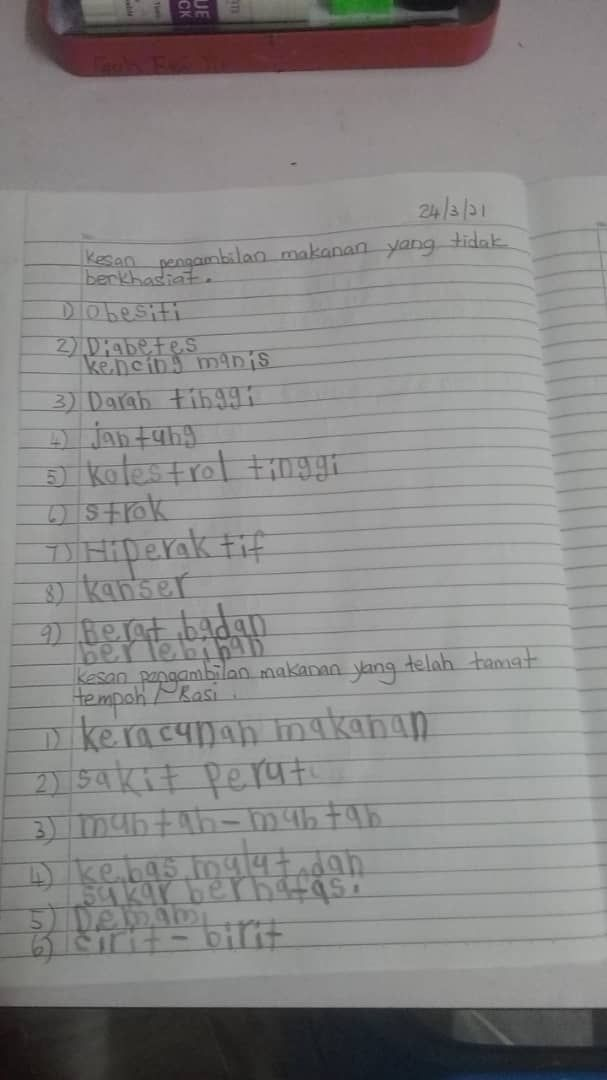 24/3/21
Kesan pengambilan makanan yang tidak
berkhasiat.
1) Obesiti
2) Diabetes
kencing manis
3) Darah tinggi
4) jantung
5) kolestrol tinggi
6) strok
7) Hiperaktif
8) kanser
9) Berat badan
berlebihan
kesan pengambilan makanan yang telah tamat
tempoh / Basi.
1) keracunan makanan
2) sakit perut.
3) muntah-muntah
4) kebas mulut dan
sukar bernafas.
5) Demam
6) cirit-birit